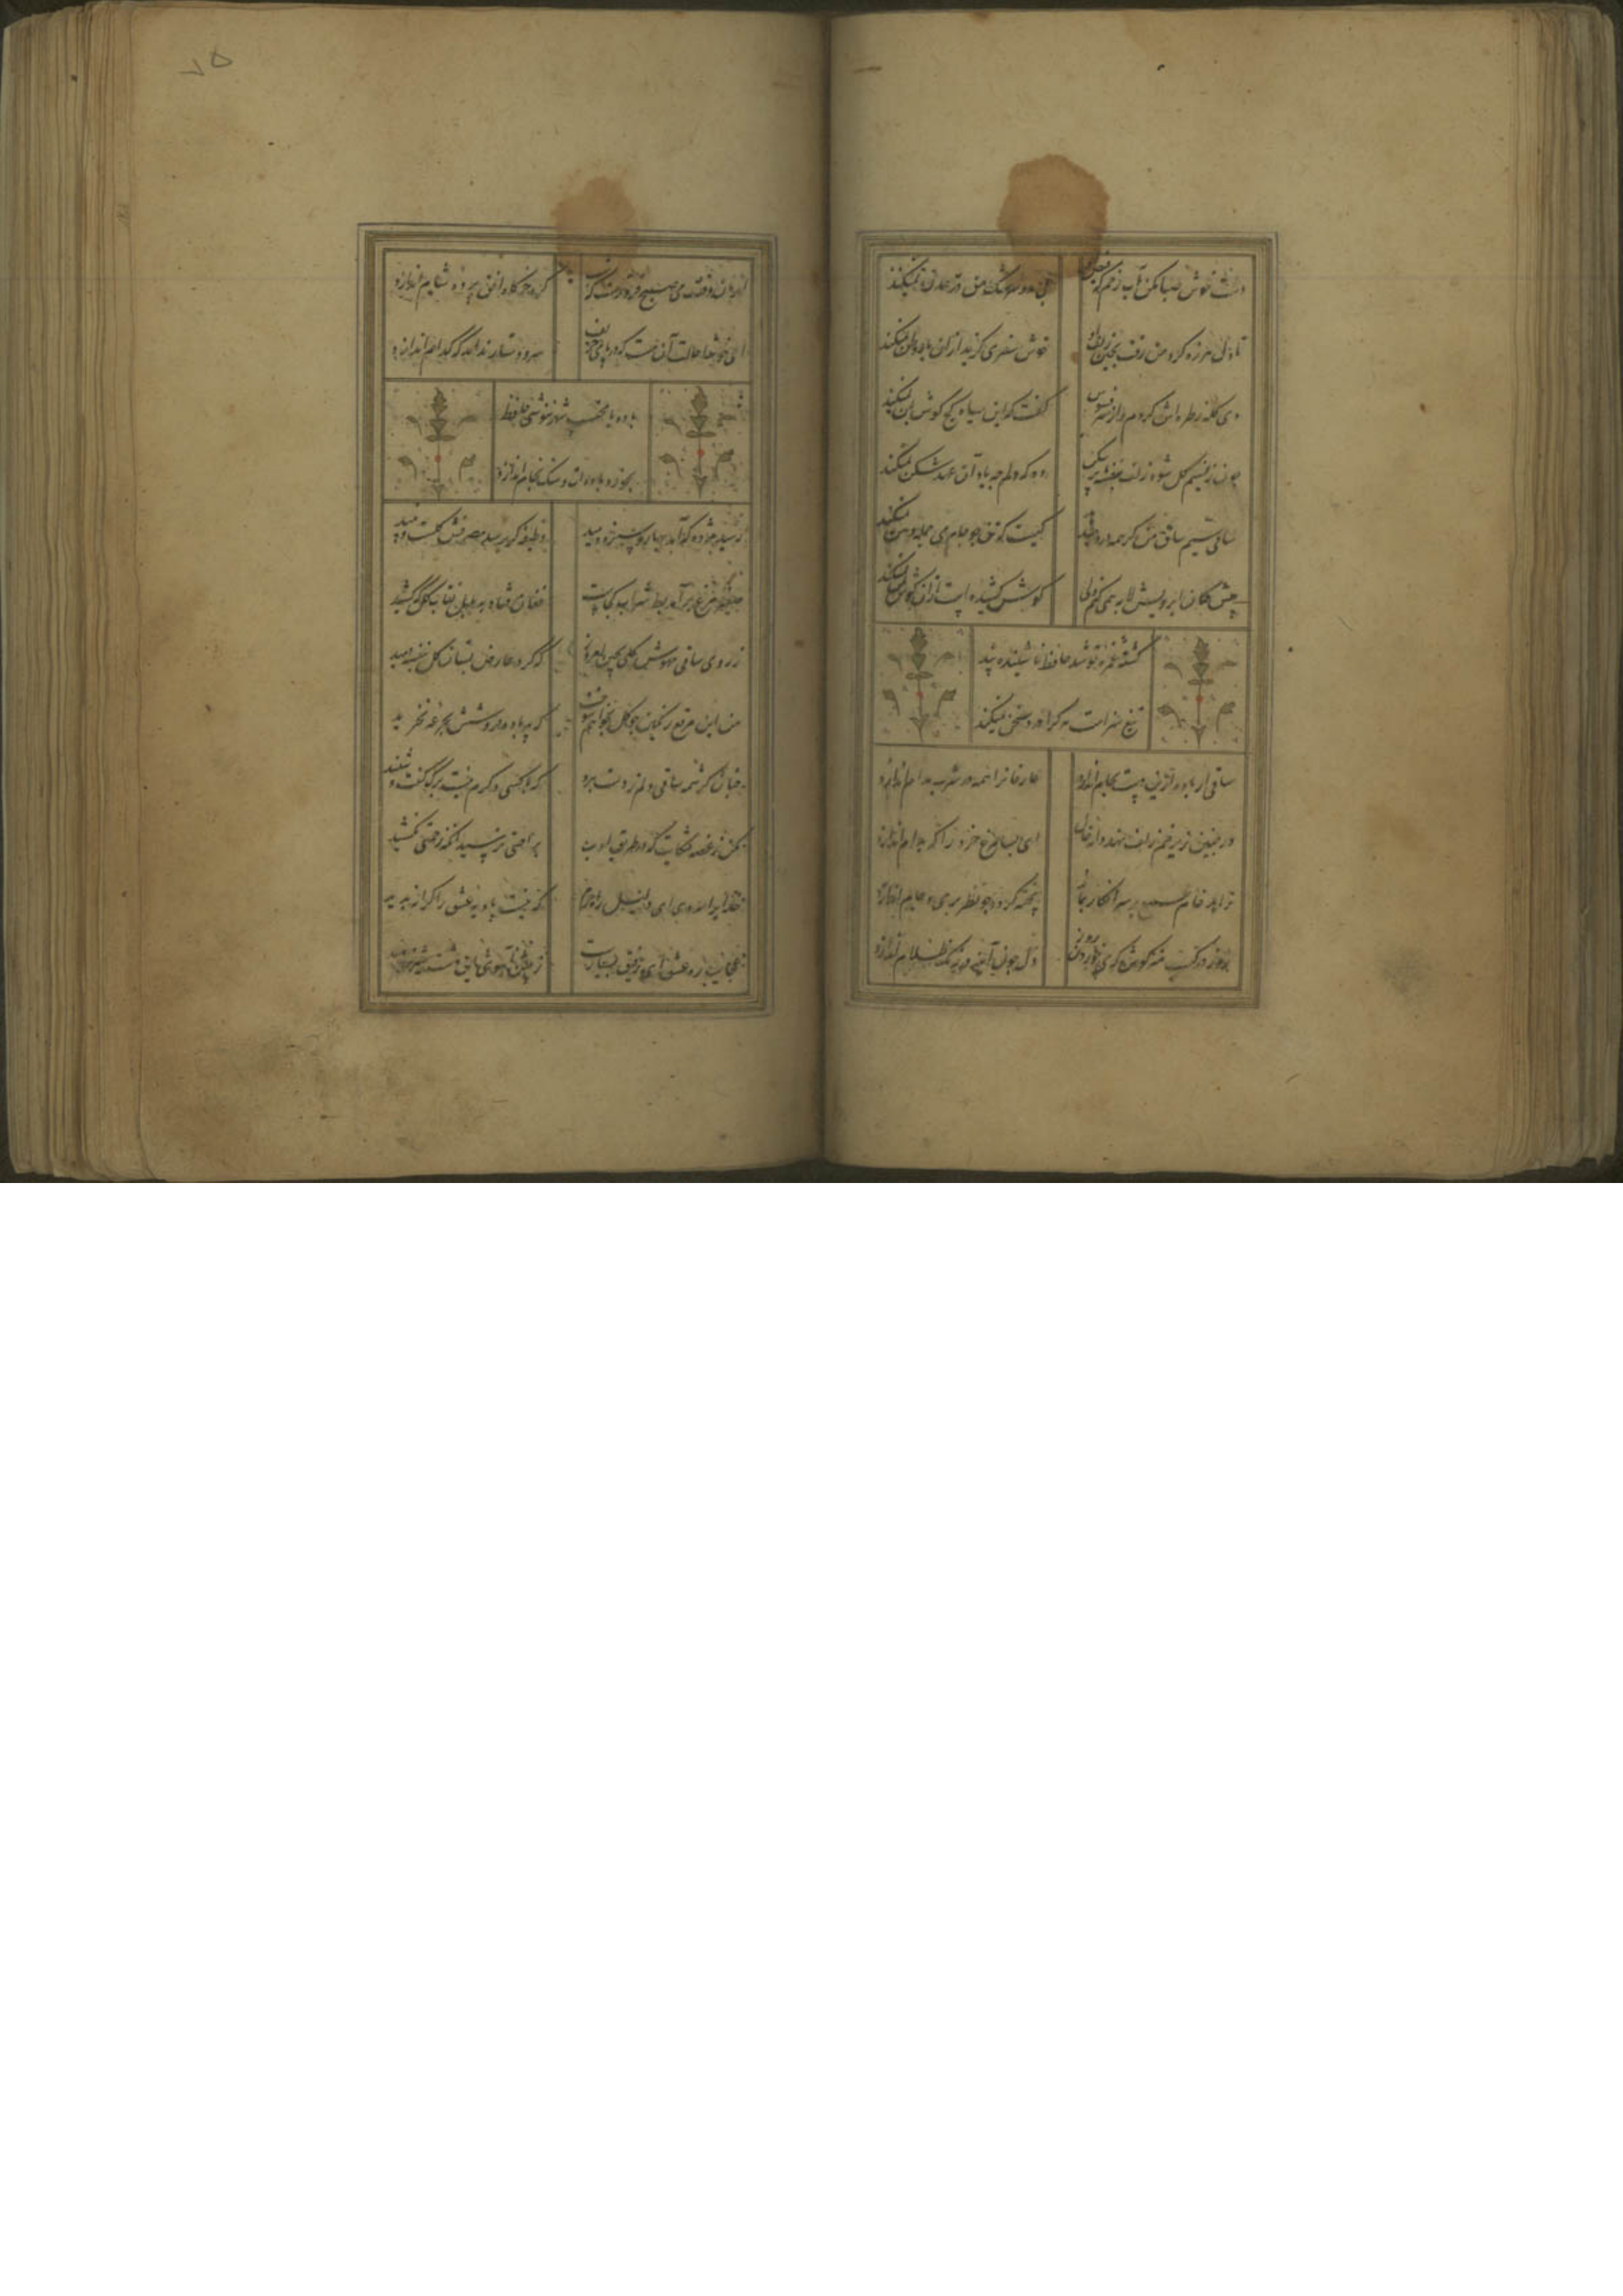 تا دل هرزه گرد من رفت بچین زلف او خوش سفری گزید ازان یاد وطن نمیکند
دی گله ز طره اش کردم و از سر فسوس گفت که این سیاه کج گوش بمن نمیکند
چون ز نسیم میشود زلف بنفشه پرشکن وه که دلم چه یاد آن عهد شکن نمیکند
ساقی سیم ساق من گر همه درد میدهد کیست که تن چو جام می جمله دهن نمیکند
پیش کمان ابرویش لابه همی کنم ولی گوش کشیده است ازان گوش بمن نمیکند
کشته غمزه تو شد حافظ ناشنیده پند
تیغ سزاست هر کرا درد سخن نمیکند
ساقی ار باده ازین دست بجام اندازد عارفانرا همه در شرب مدام اندازد
ور چنین زیر خم زلف نهد دانه خال ای بسا مرغ خرد را که بدام اندازد
زاهد خام بر سر انکار بماند پخته گردد چو نظر بر می جام اندازد
روز در کسب هنر کوش که می خوردن روز دل چون آینه در زنگ ظلام اندازد
گرد خرگاه افق پرده شام اندازد
ای خوشا حالت آن مست که در پای حریف سر و دستار نداند که کدام اندازد
باده با محتسب شهر ننوشی حافظ
بخورد باده ات و سنگ بجام اندازد
رسید مژده که آمد بهار و سبزه دمید وظیفه گر برسد مصرفش گلست و نبید
صفیر مرغ برآمد بط شراب کجاست فغان فتاد به بلبل نقاب گل که کشید
ز روی ساقی مهوش گلی بچین امروز که گرد عارض بستان گل بنفشه دمید
من این مرقع رنگین چو گل بخواهم سوخت که پیر باده فروشش بجرعه نخرید
چنان کرشمه ساقی دلم ز دست ببرد که با کسی دگرم نیست برگ گفت و شنید
مکن ز غصه شکایت که در طریق ادب براحتی نرسید آنکه زحمتی نکشید
خدایرا مددی ای دلیل راه حرم که نیست بادیه عشق را کرانه پدید
عجایب ره عشق ای رفیق بسیارست
۷۵